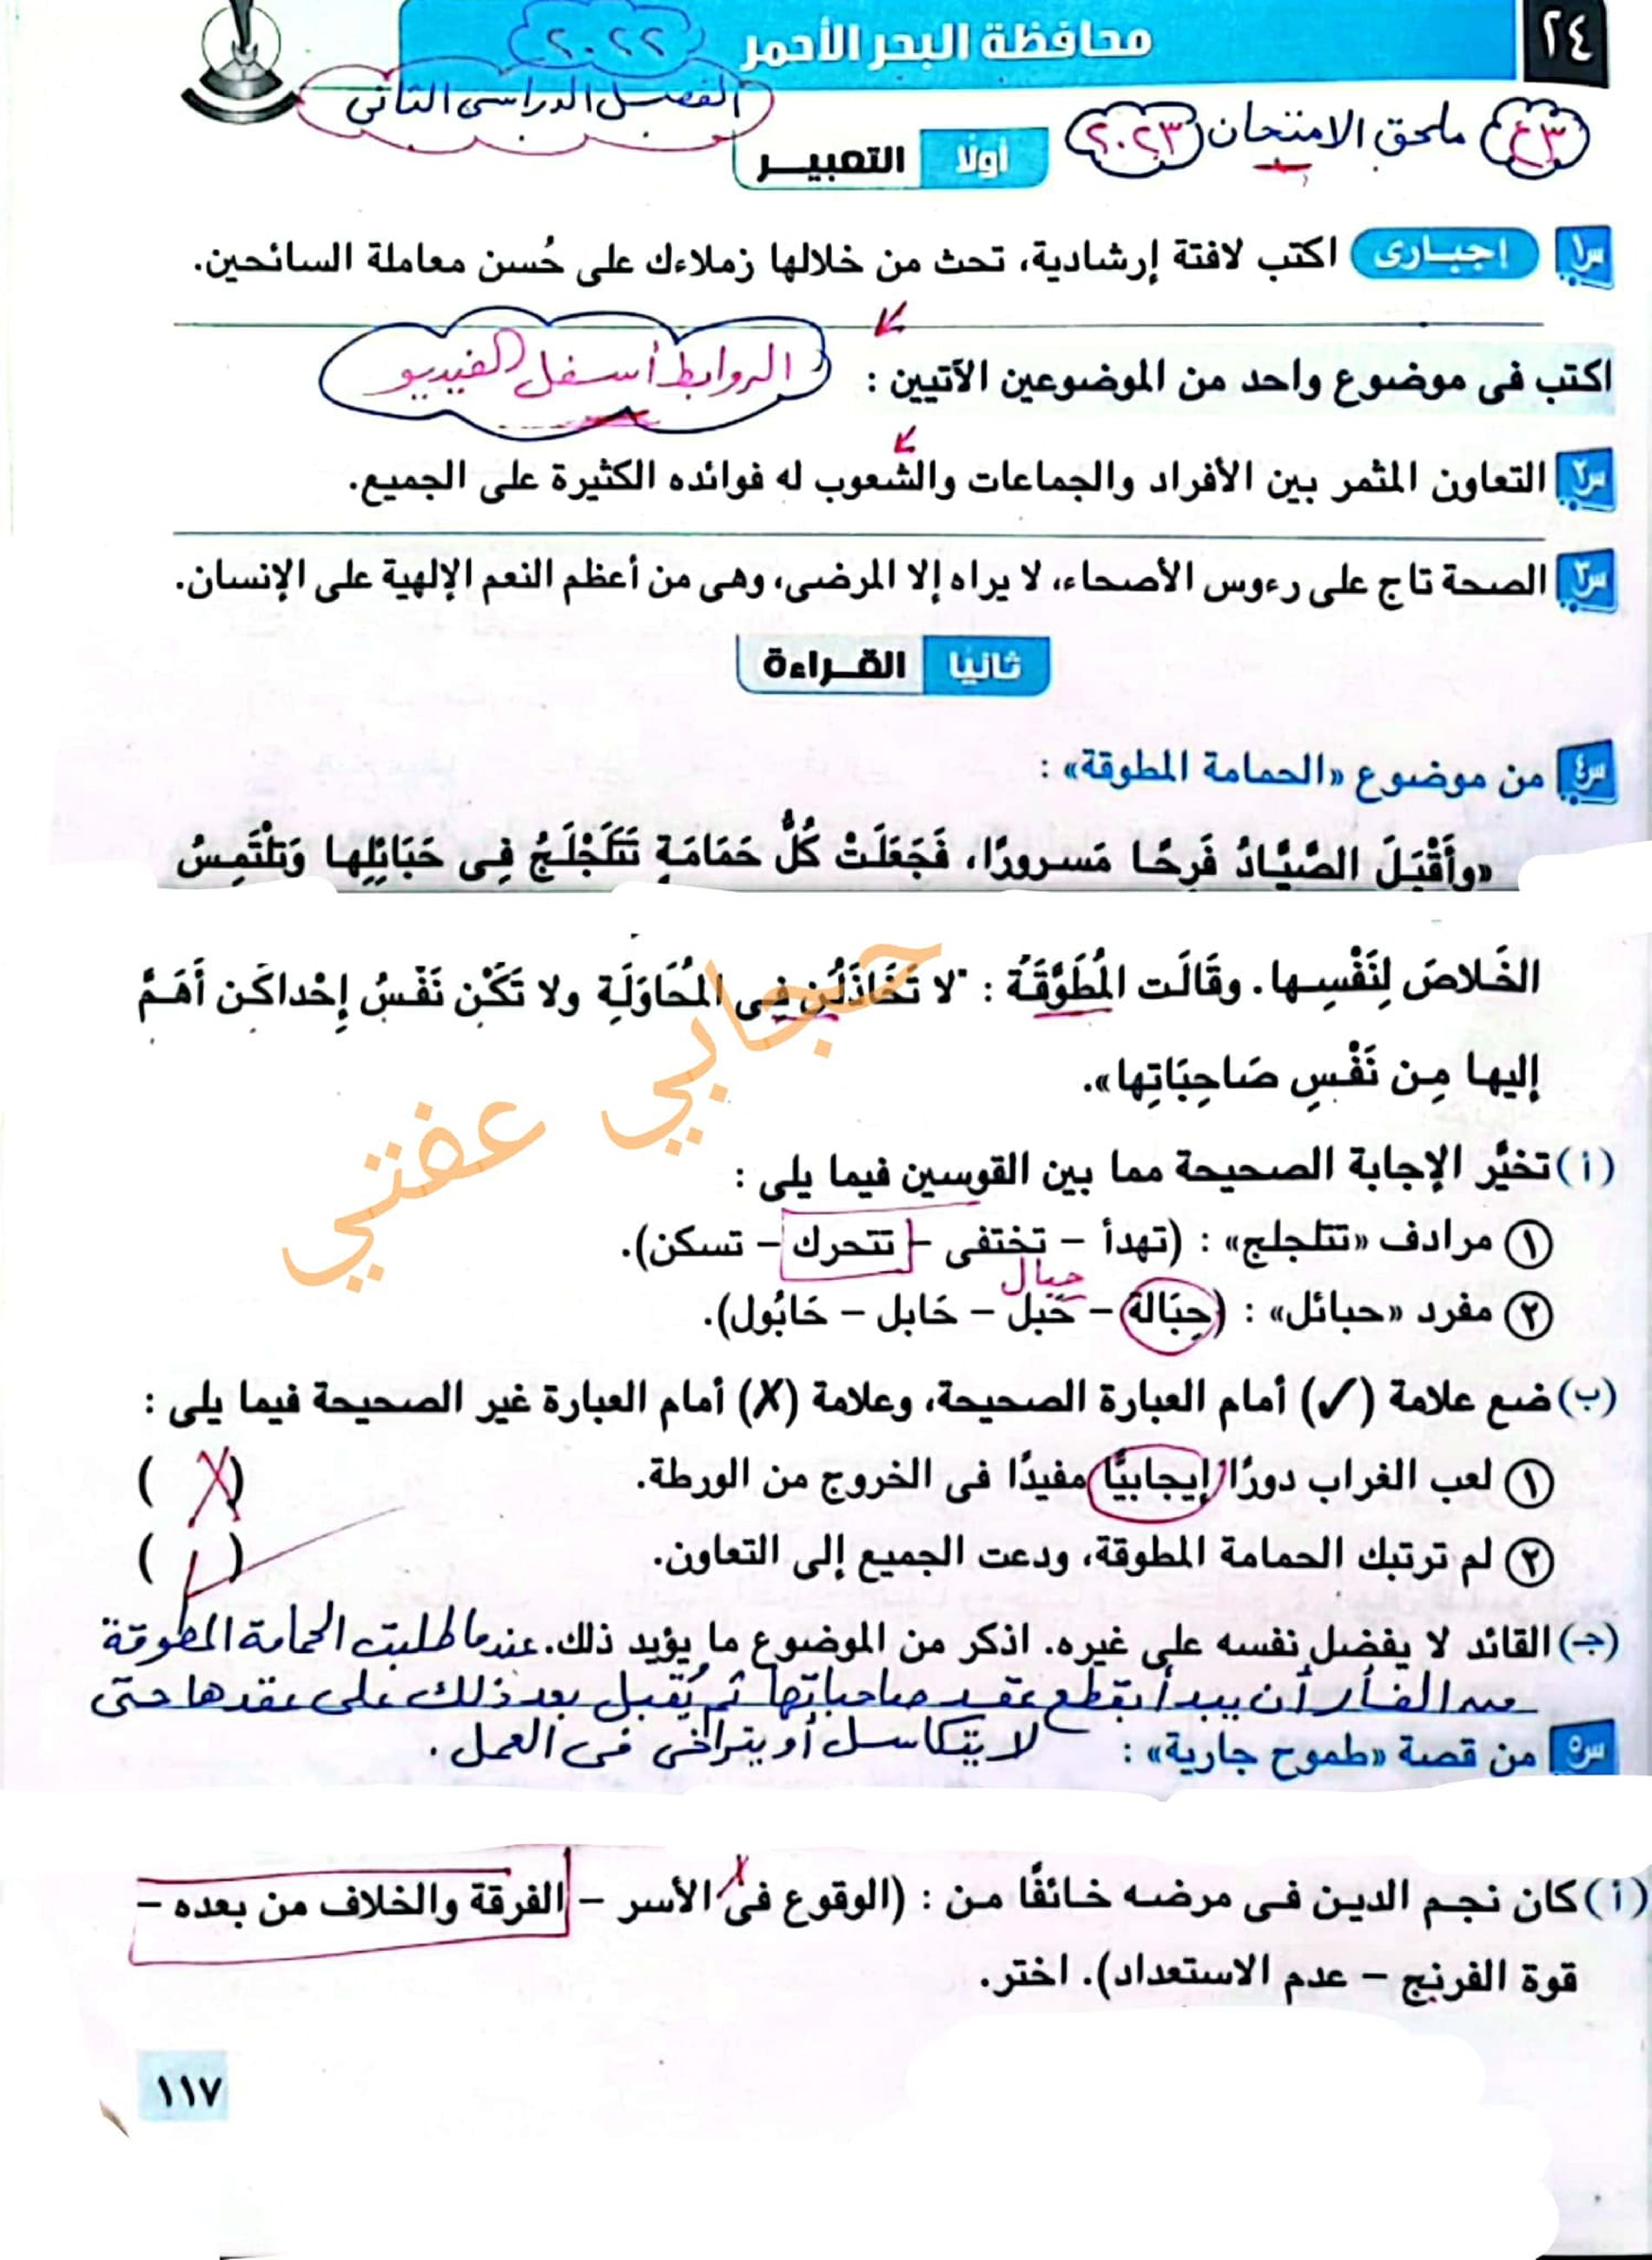 ٢٤ محافظة البحر الأحمر ٢٠٢٢
الفصل الدراسى الثانى
٣ع ملحق الامتحان ٢٠٢٣
أولا التعبيـر
س١ إجبـارى اكتب لافتة إرشادية، تحث من خلالها زملاءك على حُسن معاملة السائحين.
اكتب فى موضوع واحد من الموضوعين الآتيين : الروابط أسفل الفيديو
س٢ التعاون المثمر بين الأفراد والجماعات والشعوب له فوائده الكثيرة على الجميع.
س٣ الصحة تاج على رءوس الأصحاء، لا يراه إلا المرضى، وهى من أعظم النعم الإلهية على الإنسان.
ثانيا القـراءة
س٤ من موضوع «الحمامة المطوقة» :
«وأَقْبَلَ الصَّيَّادُ فَرِحًا مَسرورًا، فَجَعَلَتْ كُلُّ حَمَامَةٍ تَتَلَجْلَجُ فِى حَبَائِلِها وَتلْتَمِسُ
الخَلاصَ لِنَفْسِها. وقَالَت المُطَوَّقَةُ : "لا تَخَاذَلْن فِى المُحَاوَلَةِ ولا تَكُن نَفْسُ إِحْداكُن أَهَمَّ
إليها مِن نَفْسِ صَاحِبَاتِها».
حجابي عفتي
(أ) تخيَّر الإجابة الصحيحة مما بين القوسين فيما يلى :
١ مرادف «تتلجلج» : (تهدأ – تختفى – تتحرك – تسكن).
حبال
٢ مفرد «حبائل» : (حِبَالة – حَبل – حَابل – حَابُول).
(ب) ضع علامة (✓) أمام العبارة الصحيحة، وعلامة (✗) أمام العبارة غير الصحيحة فيما يلى :
١ لعب الغراب دورًا إيجابيًّا مفيدًا فى الخروج من الورطة. ( ✗ )
٢ لم ترتبك الحمامة المطوقة، ودعت الجميع إلى التعاون. ( ✓ )
(جـ) القائد لا يفضل نفسه على غيره. اذكر من الموضوع ما يؤيد ذلك. عندما طلبت الحمامة المطوقة
من الفأر أن يبدأ بقطع عقد صاحباتها ثم يُقبل بعد ذلك على عقدها حتى
لا يتكاسل أو يتراخى فى العمل.
س٥ من قصة «طموح جارية» :
(أ) كان نجم الدين فى مرضه خائفًا من : (الوقوع فى الأسر – الفرقة والخلاف من بعده –
قوة الفرنج – عدم الاستعداد). اختر.
١١٧